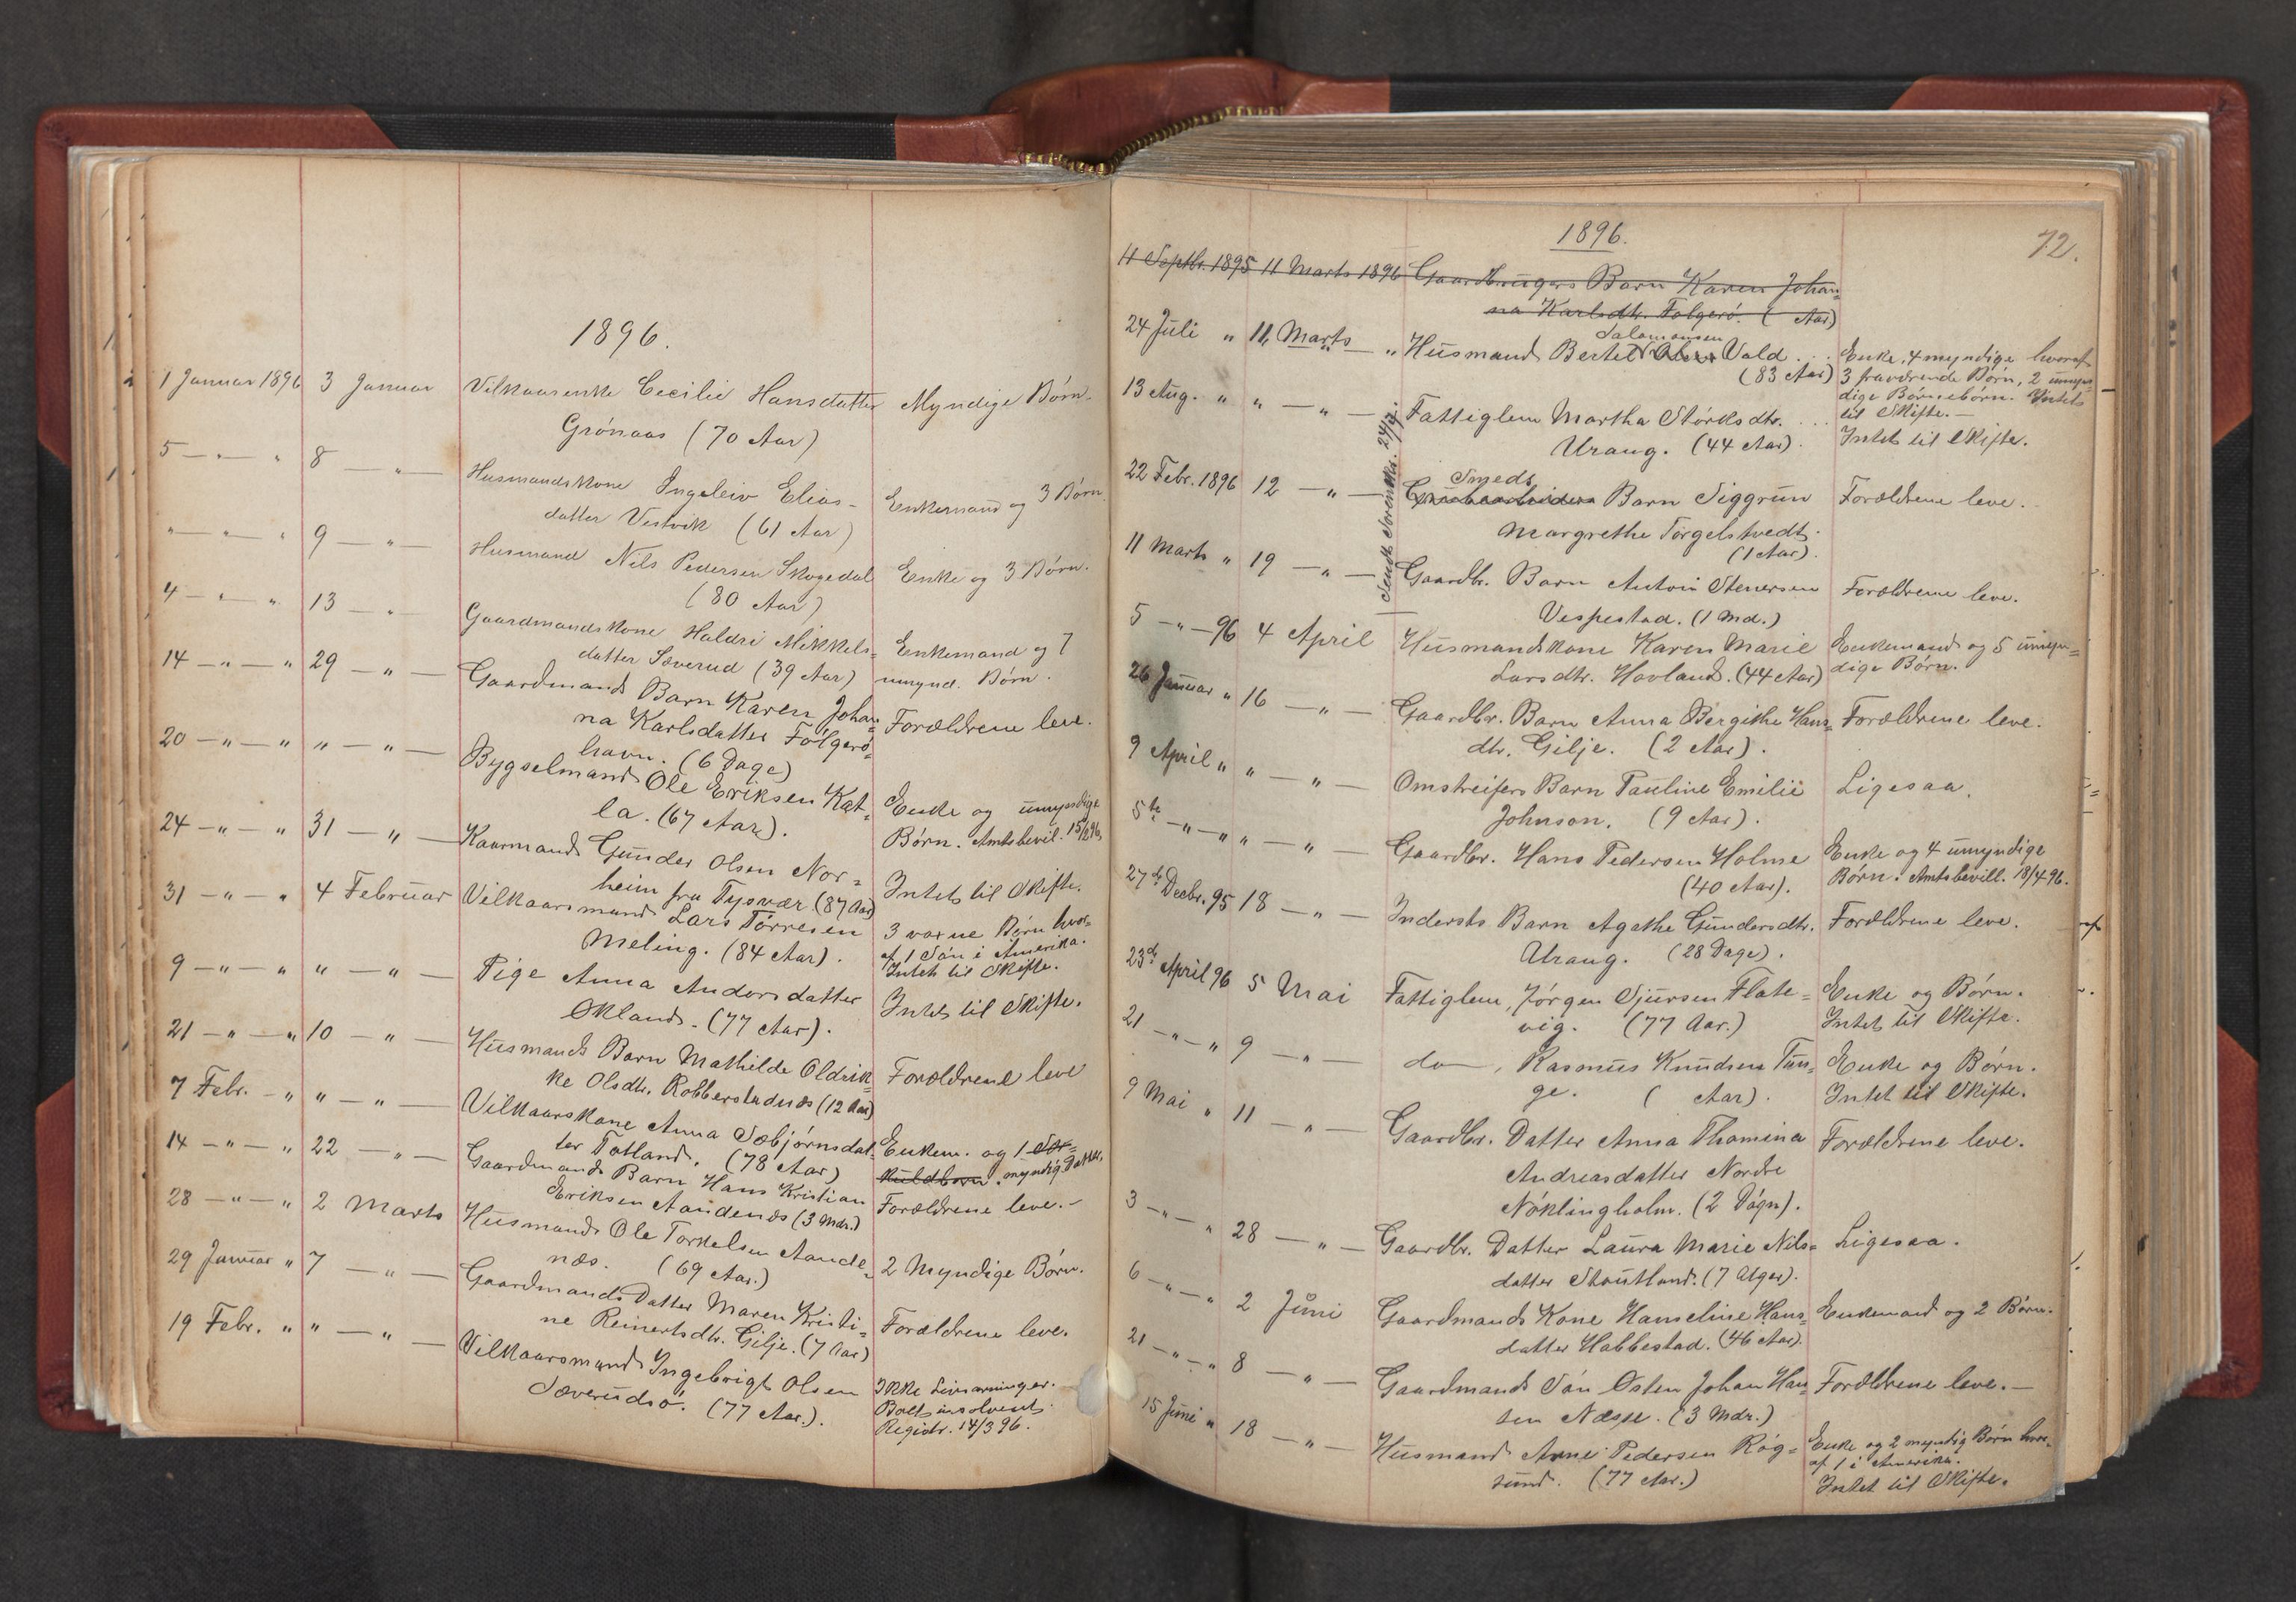 1896.
1 Januar 1896 3 Januar Vilkaarenke Cecilie Hansdatter Myndige Børn.
Grönaas (70 Aar)
5 — " — " 8 — " — Husmandskone Ingeleiv Elias- Enkemand og 3 Børn.
datter Vestvik (61 Aar)
" — " — " 9 — " — Husmand Nils Pedersen Skogedal Enke og 3 Børn.
(80 Aar)
4 — " — " 13 — " Gaardmandskone Haldri Mikkels= Enkemand og 7
datter Sæverud (39 Aar) umynd. Børn.
14 — " — " 29 — " — Gaardmands Barn Karen Johan= Forældrene leve.
na Karlsdatter Folgerö-
havn. (6 Dage)
20 — " — " " — " — Bygselmand Ole Eriksen Kat- Enke og umyndige
la. (67 Aar). Børn. Amtsbevil. 15/2 96.
24 — " — " 31 — " — Kaarmand Gunder Olsen Nor= Intet til Skifte.
heim fra Tysvær (87 Aar)
31 — " — " 4 Februar Vilkaarsmand Lars Tørresen 3 voxne Børn hvor-
Meling. (84 Aar). af 1 Søn i Amerika.
Intet til Skifte.
9 — " — " " — " — Pige Anna Andersdatter Intet til Skifte.
Økland. (77 Aar).
21 — " — " 10 — " — Husmands Barn Mathilde Oldrik= Forældrene leve
ke Olsdtr. Robberstadnæs (12 Aar)
7 Febr. — " " — " — Vilkaarskone Anna Sæbjørnsdat- Enkem. og 1 Sær=
ter Totland. (78 Aar) kuldbarn. myndig Datter.
14 — " — " 22 — " — Gaardmands Barn Hans Kristian Forældrene leve. -
Eriksen Aandenæs (3 Mdr.)
28 — " — " 2 Marts Husmand Ole Torkelsen Aande- 2 Myndige Børn.
næs. (69 Aar.)
29 Januar " 7 — " — Gaardmands Datter Maren Kristi= Forældrene leve.
ne Reinertsdtr. Gilje. (7 Aar)
19 Febr. " " — " — Vilkaarsmand Ingebrigt Olsen Ikke Livsarvinger.
Sæverudsö. (77 Aar.). Boet insolvent.
Registr. 14/3 96.
1896.
72.
11 Septbr. 1895 11 Marts 1896 Gaardbrugers Barn Karen Johan=
na Karlsdtr. Folgerö. ( Aar)
Salamonsen
24 Juli " 11. Marts — " Husmand Bertel Vold . . . Enke, 4 myndige hvoraf
(83 Aar) 3 fraværende Børn, 2 umyn-
dige Børnebørn. Intet
til Skifte. —
13 Aug. " " — " — Fattiglem Martha Størksdtr. . . . Intet til Skifte.
Urang. (44 Aar).
Sendt Sorenskr. 24/3.
Smeds
22 Febr. 1896 12 — " — Barn Siggrun Forældrene leve.
Margrethe Torgelstvedt.
(1 Aar).
11 Marts " 19 — " — Gaardbr. Barn Anton Stenersen Forældrene leve.
Vespestad. (1 Md.)
5 — " — 96 4 April Husmandskone Karen Marie Enkemand og 5 umyn=
Larsdtr. Hovland. (44 Aar) dige Børn.
26 Januar " 16 — " — Gaardbr. Barn Anna Bergithe Hans= Forældrene leve.
dtr. Gilje. (2 Aar).
9 April " " — " — Omstreifers Barn Pauline Emilie Ligesaa.
Johnson. (9 Aar).
5te — " — " " — " — Gaardbr. Hans Pedersen Holme Enke og 4 umyndige
(40 Aar). Børn. Amtsbevill. 18/4 96.
27de Decbr. 95 18 — " — Indersts Barn Agathe Gundersdtr. Forældrene leve.
Urang. (28 Dage).
23de April 96 5 Mai Fattiglem, Jørgen Sjursen Flate= Enke og Børn.
vig. (77 Aar.) Intet til Skifte.
21 — " — " 9 — " — do —, Rasmus Knudsen Tun= Enke og Børn.
ge. ( Aar). Intet til Skifte.
9 Mai " 11 — " — Gaardbr. Datter Anna Thomina Forældrene leve.
Andreasdatter Nordre
Nøklingholm. (2 Døgn).
3 — " — " 28 — " — Gaardbr. Datter Laura Marie Nils= Ligesaa.
datter Stoutland. (7 Uger).
6 — " — " 2 Juni Gaardmands Kone Hanseline Hans= Enkemand og 2 Børn.
datter Habbestad. (46 Aar).
21 — " — " 8 — " — Gaardmands Søn Østen Johan Han= Forældrene leve. —
sen Næsse. (3 Mdr.)
15 Juni " 18 — " — Husmand Arne Pedersen Røg= Enke og 2 myndig Børn hvor-
sund. (77 Aar.) af 1 i Amerika.
Intet til Skifte.